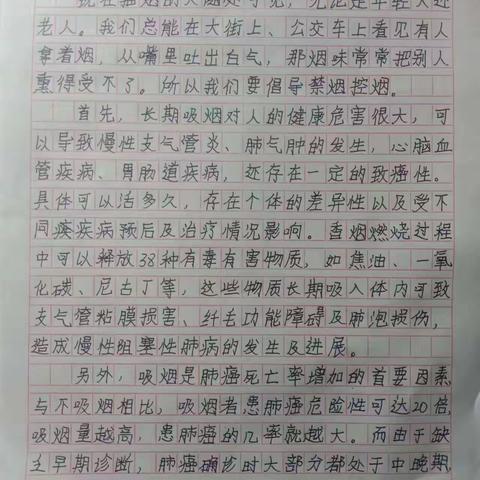 现在抽烟的人随处可见，无论是年轻人还
老人。我们总能在大街上、公交车上看见有人
拿着烟，从嘴里吐出白气，那烟味常常把别人
熏得受不了。所以我们要倡导禁烟控烟。
首先，长期吸烟对人的健康危害很大，可
以导致慢性支气管炎、肺气肿的发生，心脑血
管疾病、胃肠道疾病，还存在一定的致癌性。
具体可以活多久，存在个体的差异性以及受不
同疾病预后及治疗情况影响。香烟燃烧过程
中可以释放38种有毒有害物质，如焦油、一氧
化碳、尼古丁等，这些物质长期吸入体内可致
支气管粘膜损害、纤毛功能障碍及肺泡损伤，
造成慢性阻塞性肺病的发生及进展。
另外，吸烟是肺癌死亡率增加的首要因素，
与不吸烟相比，吸烟者患肺癌危险性可达20倍，
吸烟量越高，患肺癌的几率就越大。而由于缺
乏早期诊断，肺癌确诊时大部分都处于中晚期，